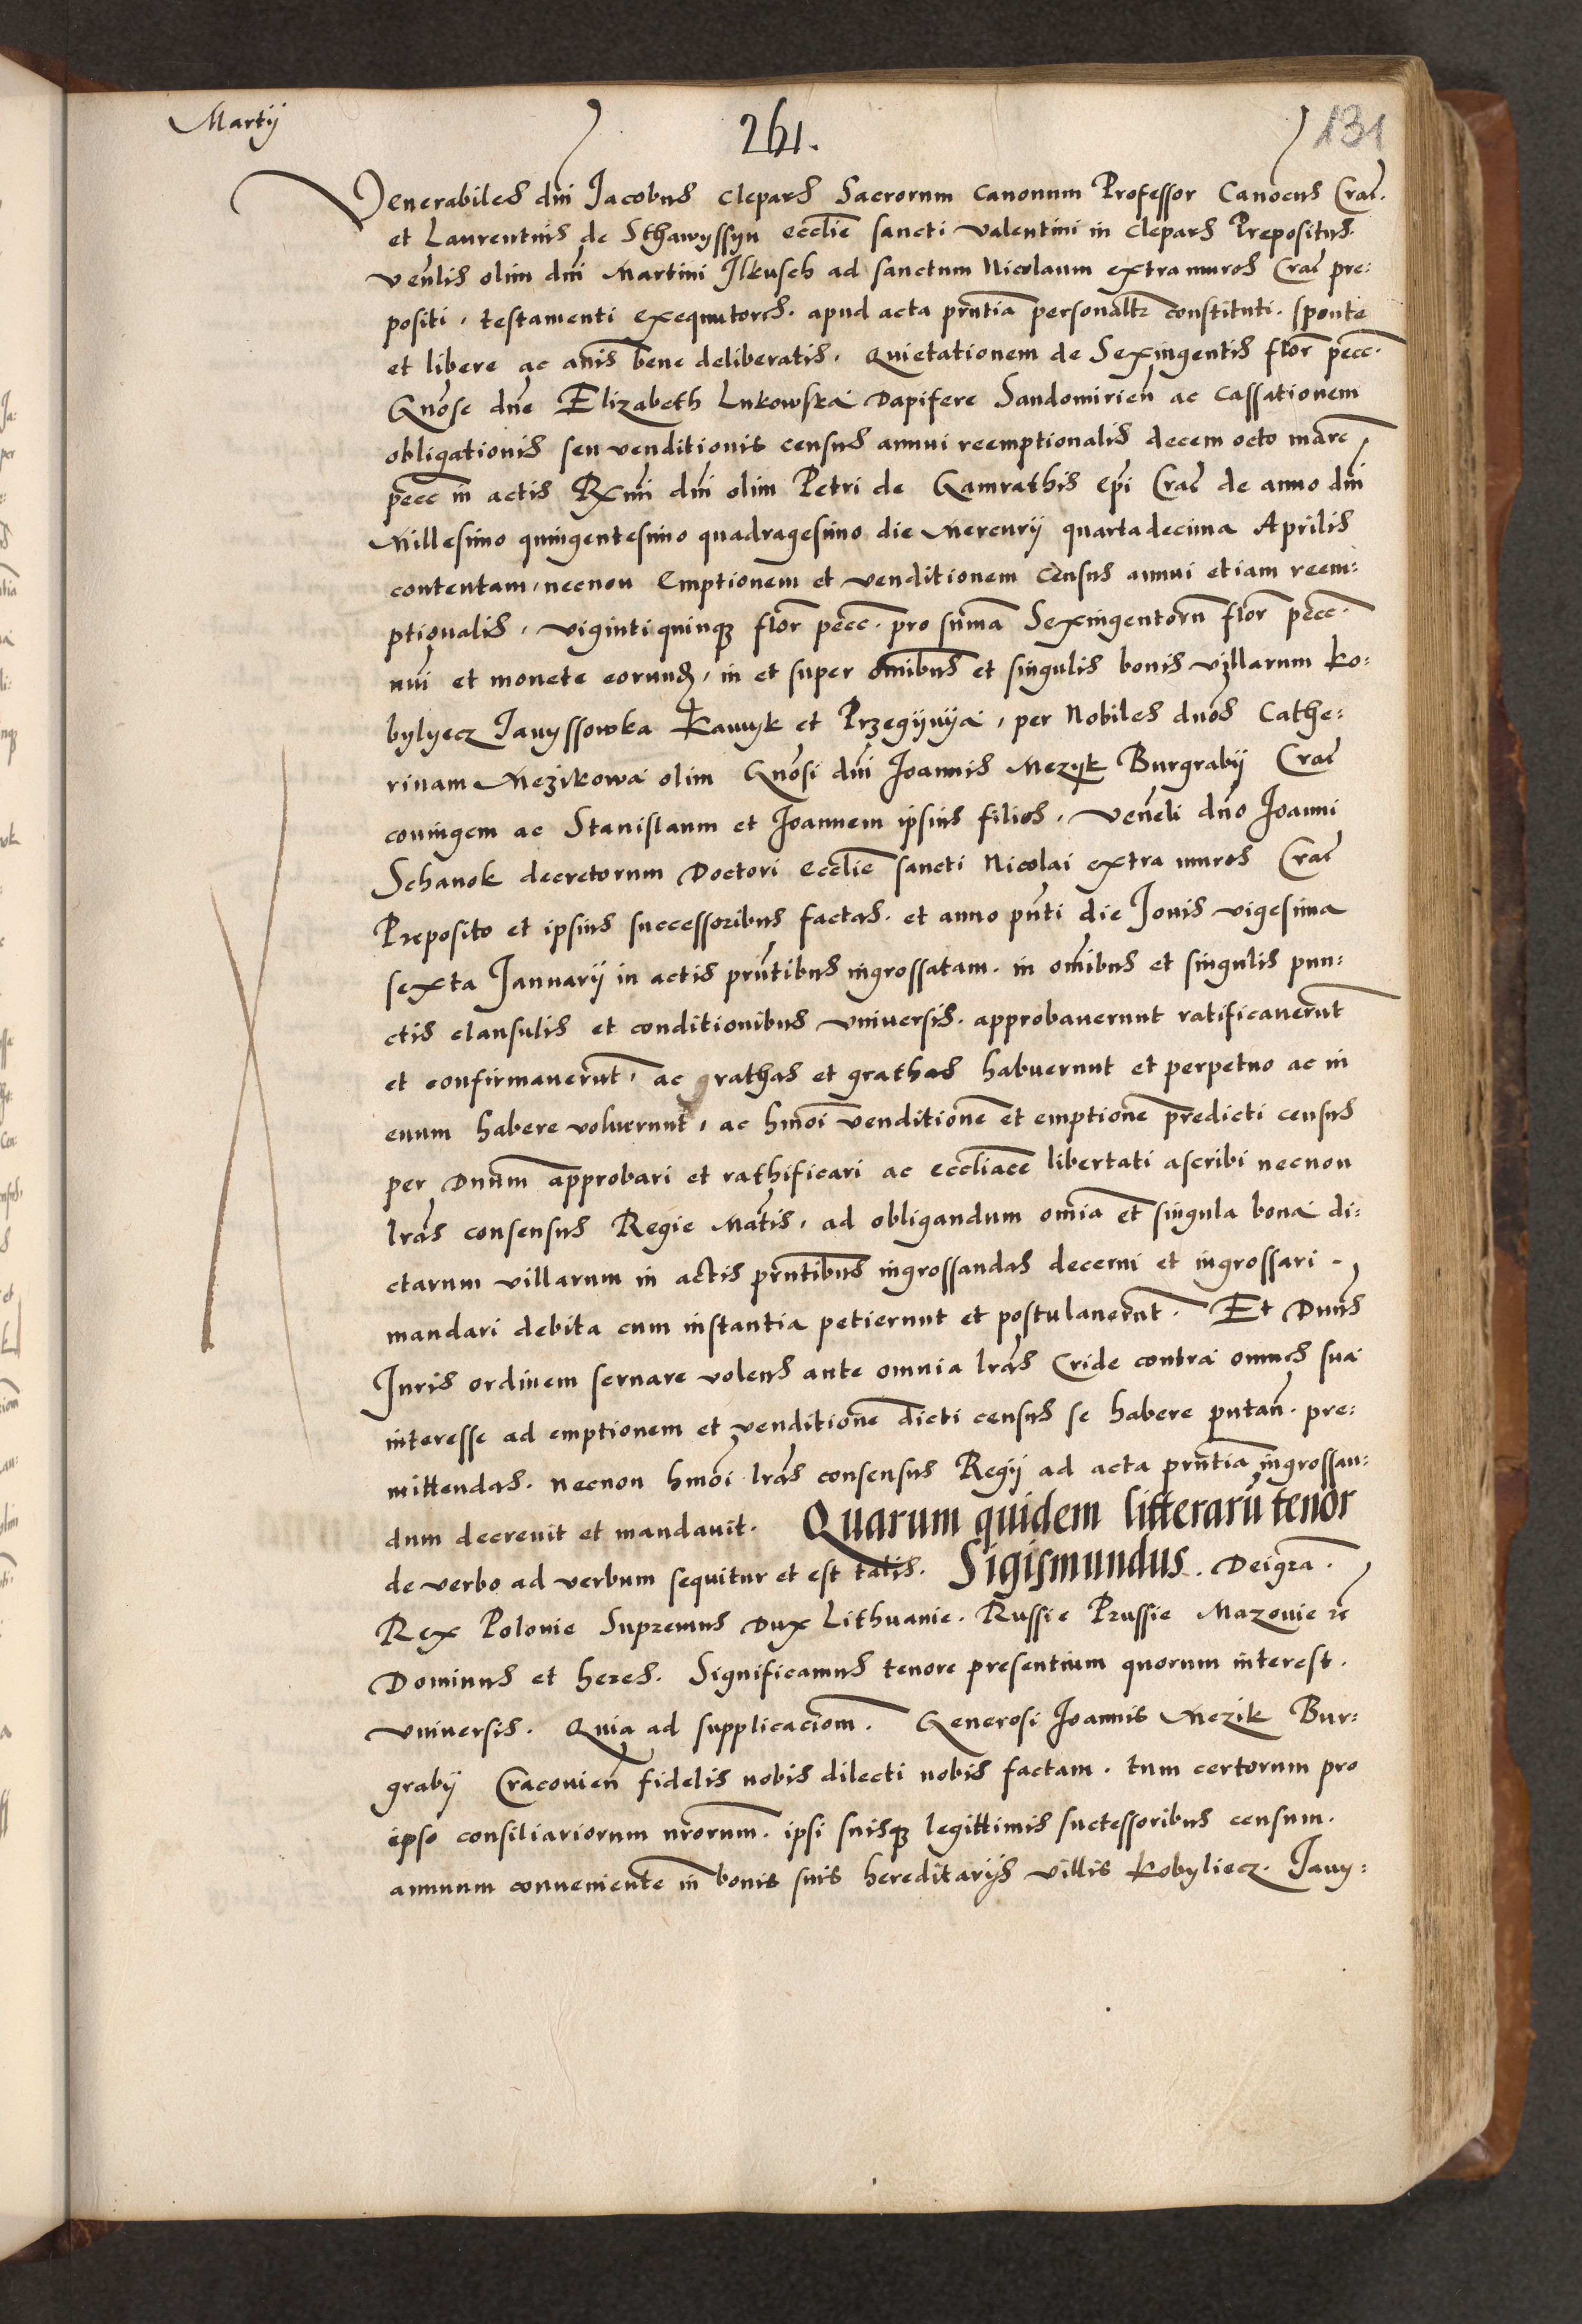 Martij
261.
131
Venerabiles dni Jacobus Clepars Sacrorum Canonum Professor Canocus Crac.
et Laurentius de Sthawyssyn ecclie sancti Valentini in Clepars Prepositus.
Venlis olim dni Martini Ilkusch ad sanctum Nicolaum extra muros Crac pre:
positi, testamenti exequutores. apud acta prntia personaltr constituti. sponte
et libere ac anis bene deliberatis, Quietationem de Sexingentis flor pecc.
Gnose dne Elizabeth Lukowska Dapifere Sandomirien ac Cassationem
obligationis seu venditionis census annui reemptionalis decem octo marc
pecc in actis Rxmi dni olim Petri de Gamrathis Epi Crac de anno dni
Millesimo quingentesimo quadragesimo die Mercurij quartadecima Aprilis
contentam, necnon Emptionem et venditionem census annui etiam reem:
ptionalis, viginti quinqz flor pecc. pro suma Sexingentoru flor pecc.
nui et monete eorund, in et super omibus et singulis bonis villarum Ko:
bylyecz Janyssowka Kawyk et Przegijnija, per Nobiles dnos Cathe:
rinam Mezikowa olim Gnosi dni Joannis Mezyk Burgrabij Crac
coniugem ac Stanislaum et Joannem ipsius filios, Veneli dno Joanni
Schanok decretorum Doctori Ecclie sancti Nicolai extra muros Crac
Preposito et ipsius successoribus factas. et anno pnti die Jovis vigesima
sexta Januarij in actis prntibus ingrossatam. in omibus et singulis pun:
ctis clausulis et conditionibus universis. approbaverunt ratificaverut
et confirmaverut, ac grathas et grathas habuerunt et perpetuo ac in
euum habere voluerunt, ac hmoi venditione et emptione predicti census
per Dnum approbari et rathificari ac eccliace libertati ascribi necnon
lras consensus Regie Matis, ad obligandum omia et singula bona di:
ctarum villarum in actis prntibus ingrossandas decerni et ingrossari
mandari debita cum instantia petierunt et postulaverut. Et Dnus
Juris ordinem servare volens ante omnia lras Cride contra omnes sua
interesse ad emptionem et venditione dicti census se habere putan. pre:
mittendas. necnon hmoi lras consensus Regij ad acta prntia ingrossan:
dum decrevit et mandavit. Quarum quidem litteraru tenor
de verbo ad verbum sequitur et est talis. Sigismundus. Dei gra.
Rex Polonie Supremus Dux Lithuanie. Russie Prussie Mazovie rc
Dominus et heres. Significamus tenore presentium quorum interest.
Universis. Quia ad supplicaciom. Generosi Joannis Mezik Bur:
grabij Cracovien fidelis nobis dilecti nobis factam. tum certorum pro
ipso consiliariorum nrorum. ipsi suisqz legittimis successoribus censum.
annuum conveniente in bonis suis hereditarijs villis Kobyliecz. Jany: